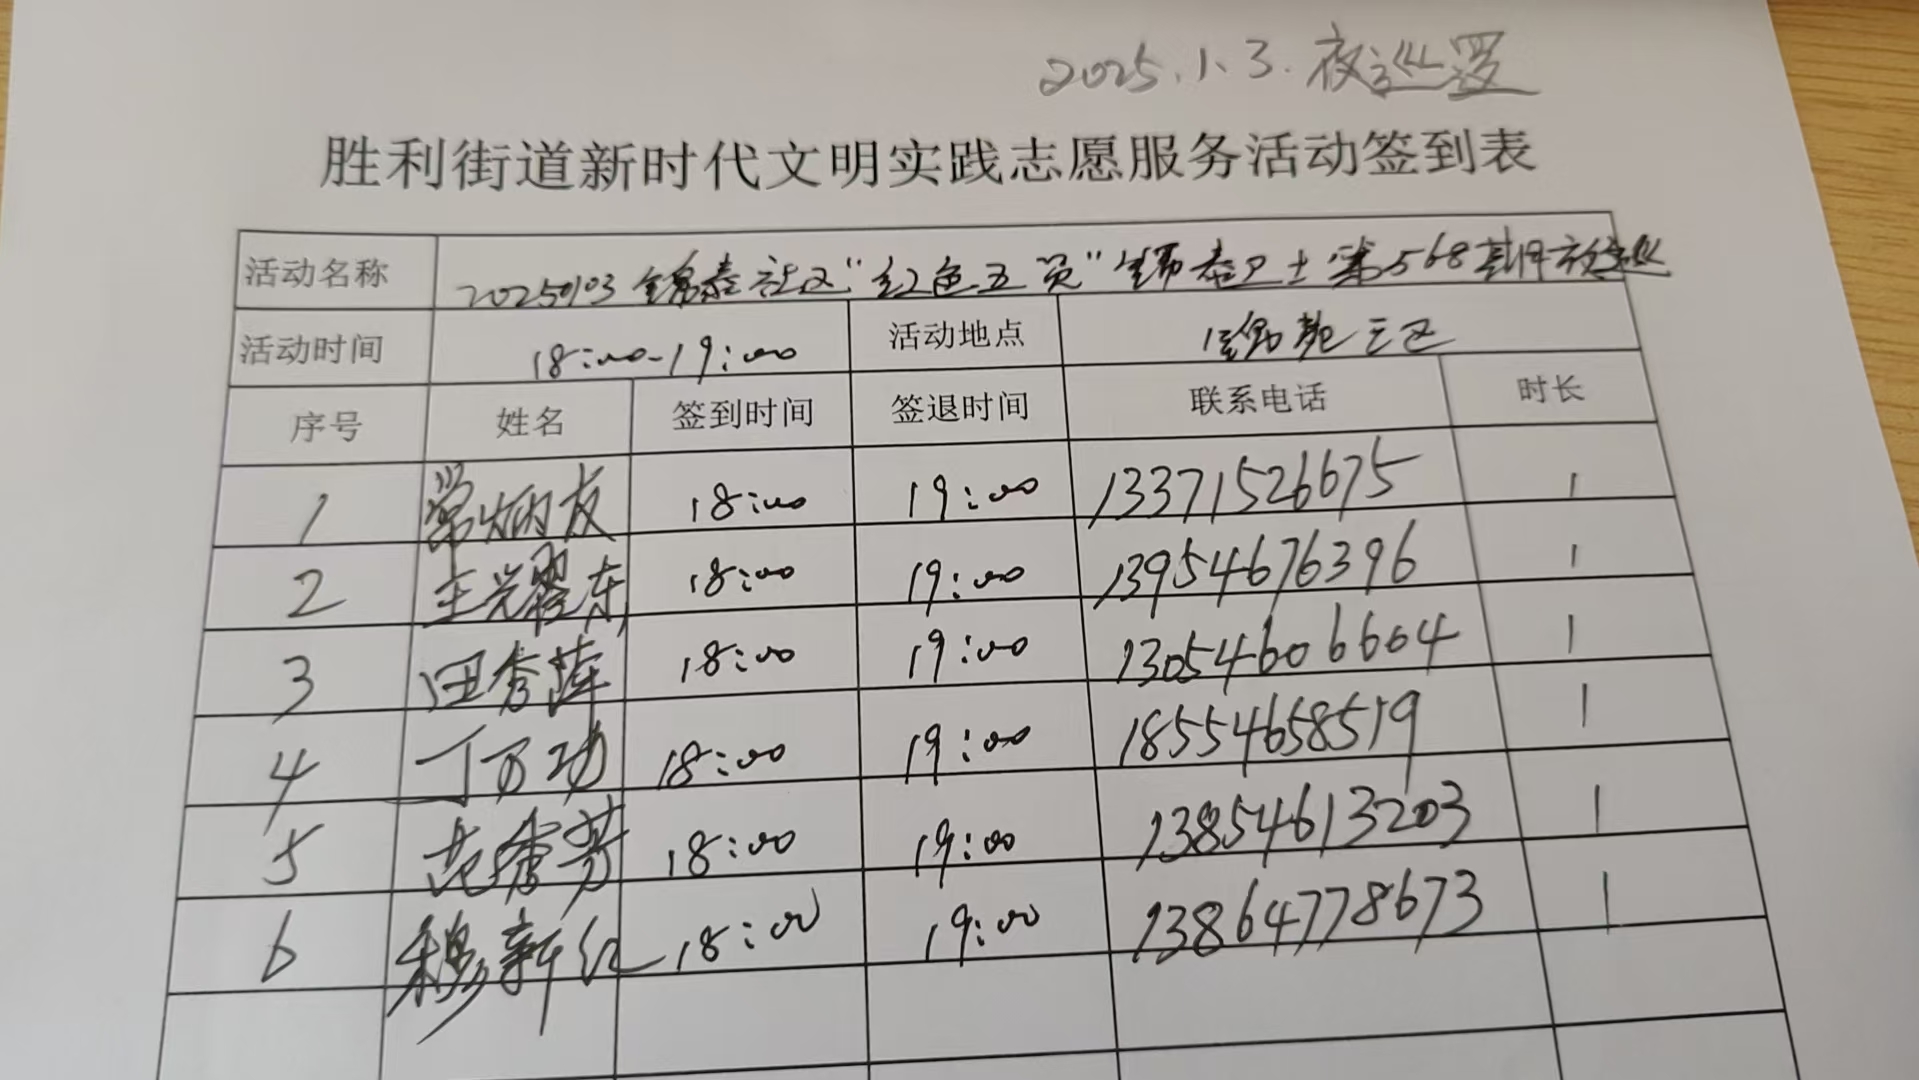 2025.1.3.夜巡逻
胜利街道新时代文明实践志愿服务活动签到表
活动名称 20250103 锦泰社区“红色五员”锦泰卫士第568期夜巡
活动时间 18:00-19:00 活动地点 锦苑三区
序号 姓名 签到时间 签退时间 联系电话 时长
1 常炳友 18:00 19:00 13371526675 1
2 王兴耀东 18:00 19:00 13954676396 1
3 田秀萍 18:00 19:00 13054606604 1
4 丁万功 18:00 19:00 18554658519 1
5 范秀芳 18:00 19:00 13854613203 1
6 穆新红 18:00 19:00 13864778673 1